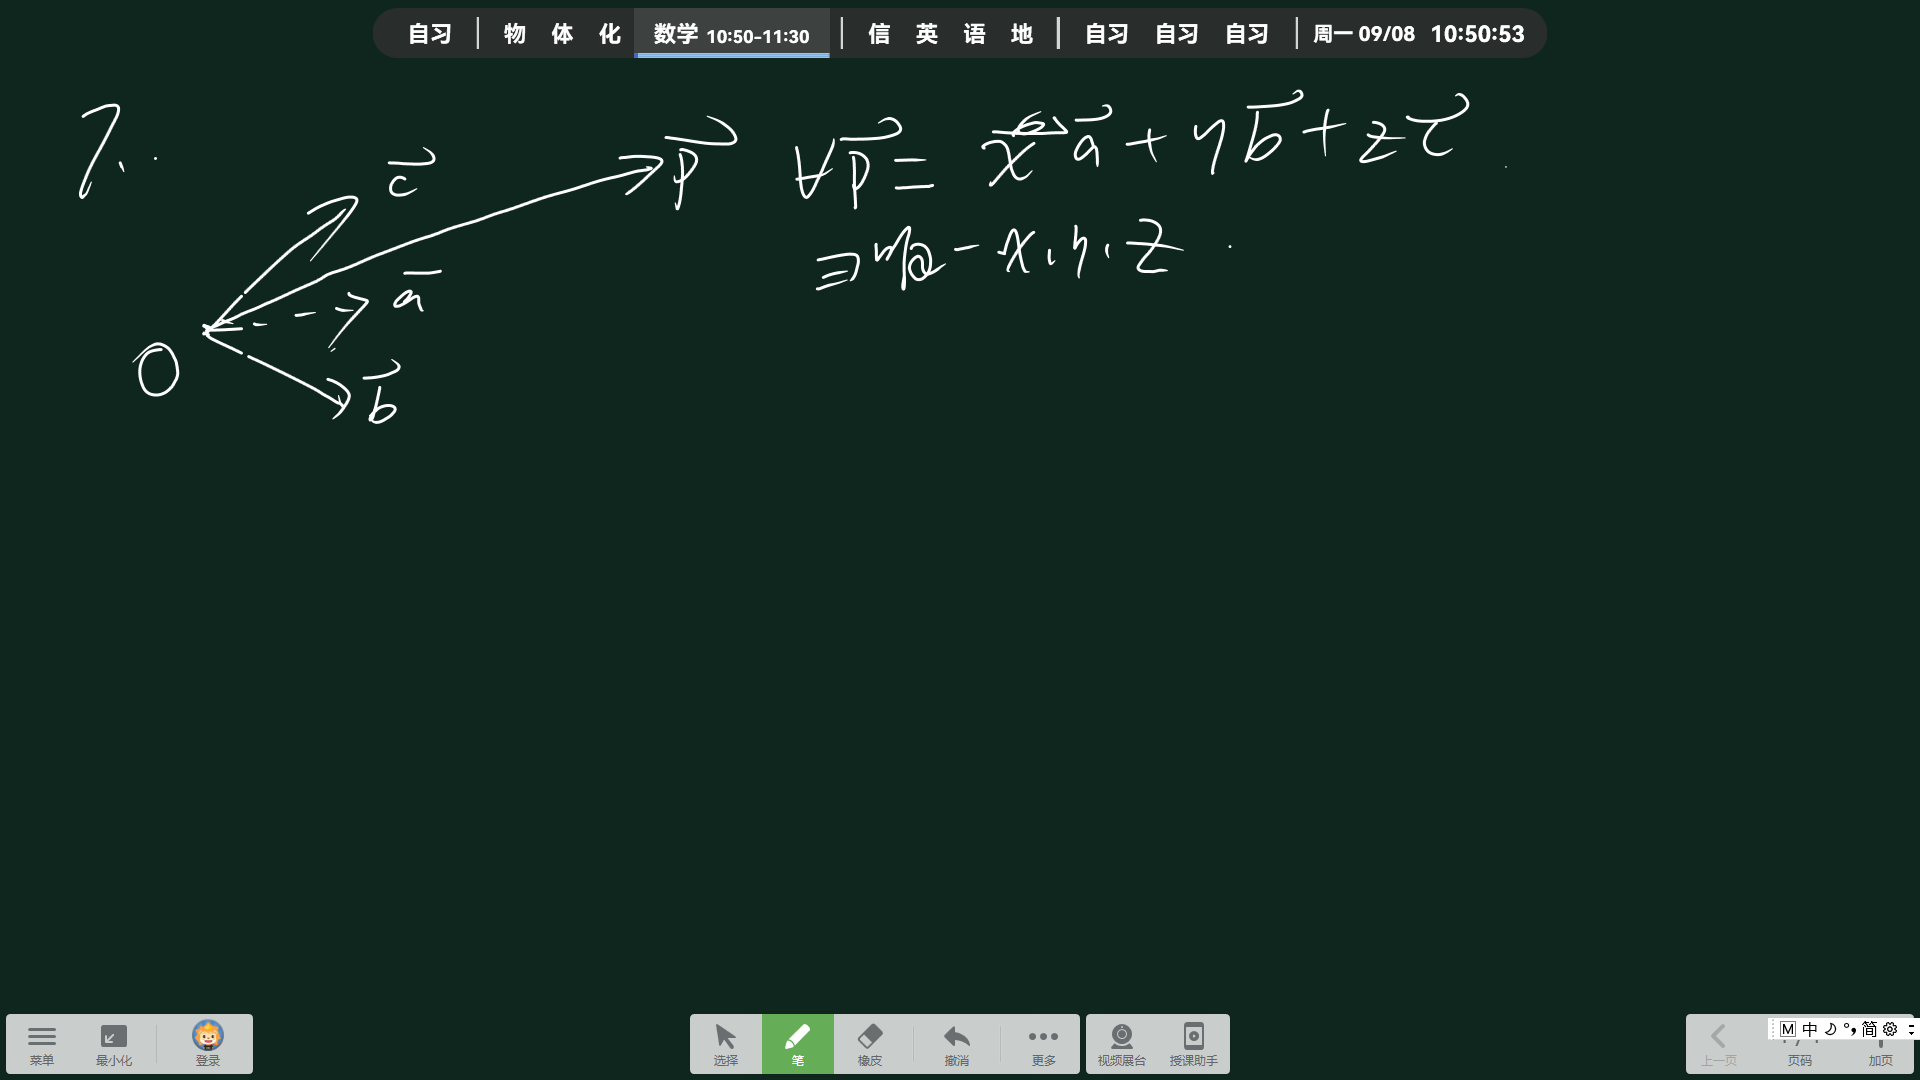 自习 | 物 体 化 数学 10:50-11:30 | 信 英 语 地 | 自习 自习 自习 | 周一 09/08 10:50:53
1.
c
p
∀p = xa + yb + zc
a
∃唯一 x, y, z
O
b
菜单 最小化 登录
选择 笔 橡皮 撤消 更多
视频展台 授课助手
上一页 页码 加页
M 中 简